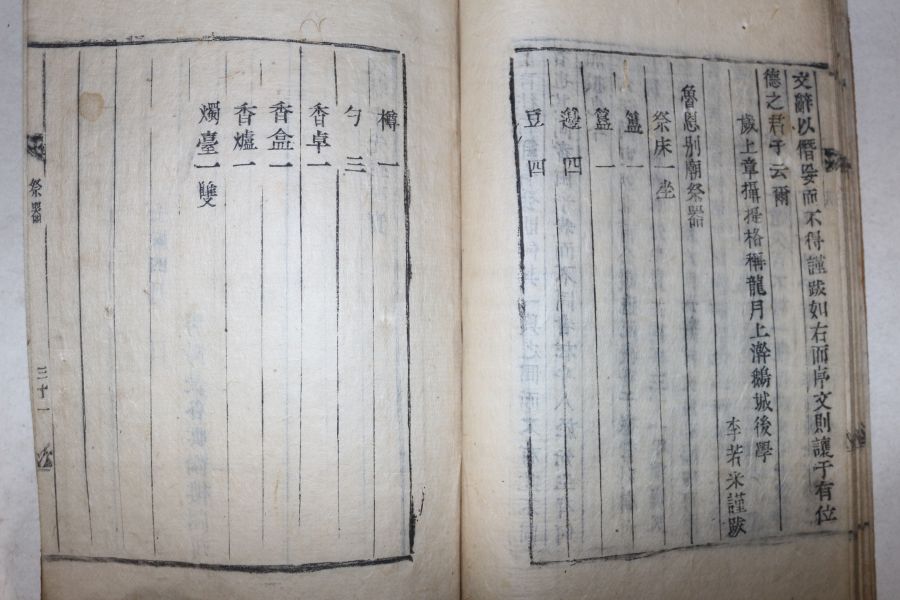 文辭以僭妄而不得謹跋如右而序文則讓于有位
德之君子云爾
歲上章攝提格稱龍月上澣鵝城後學
李若采謹跋
魯恩別廟祭器
祭床一坐
簠一
簋一
籩四
豆四
樽一
勺三
香卓一
香盒一
香爐一
燭臺一雙
祭器
三十一